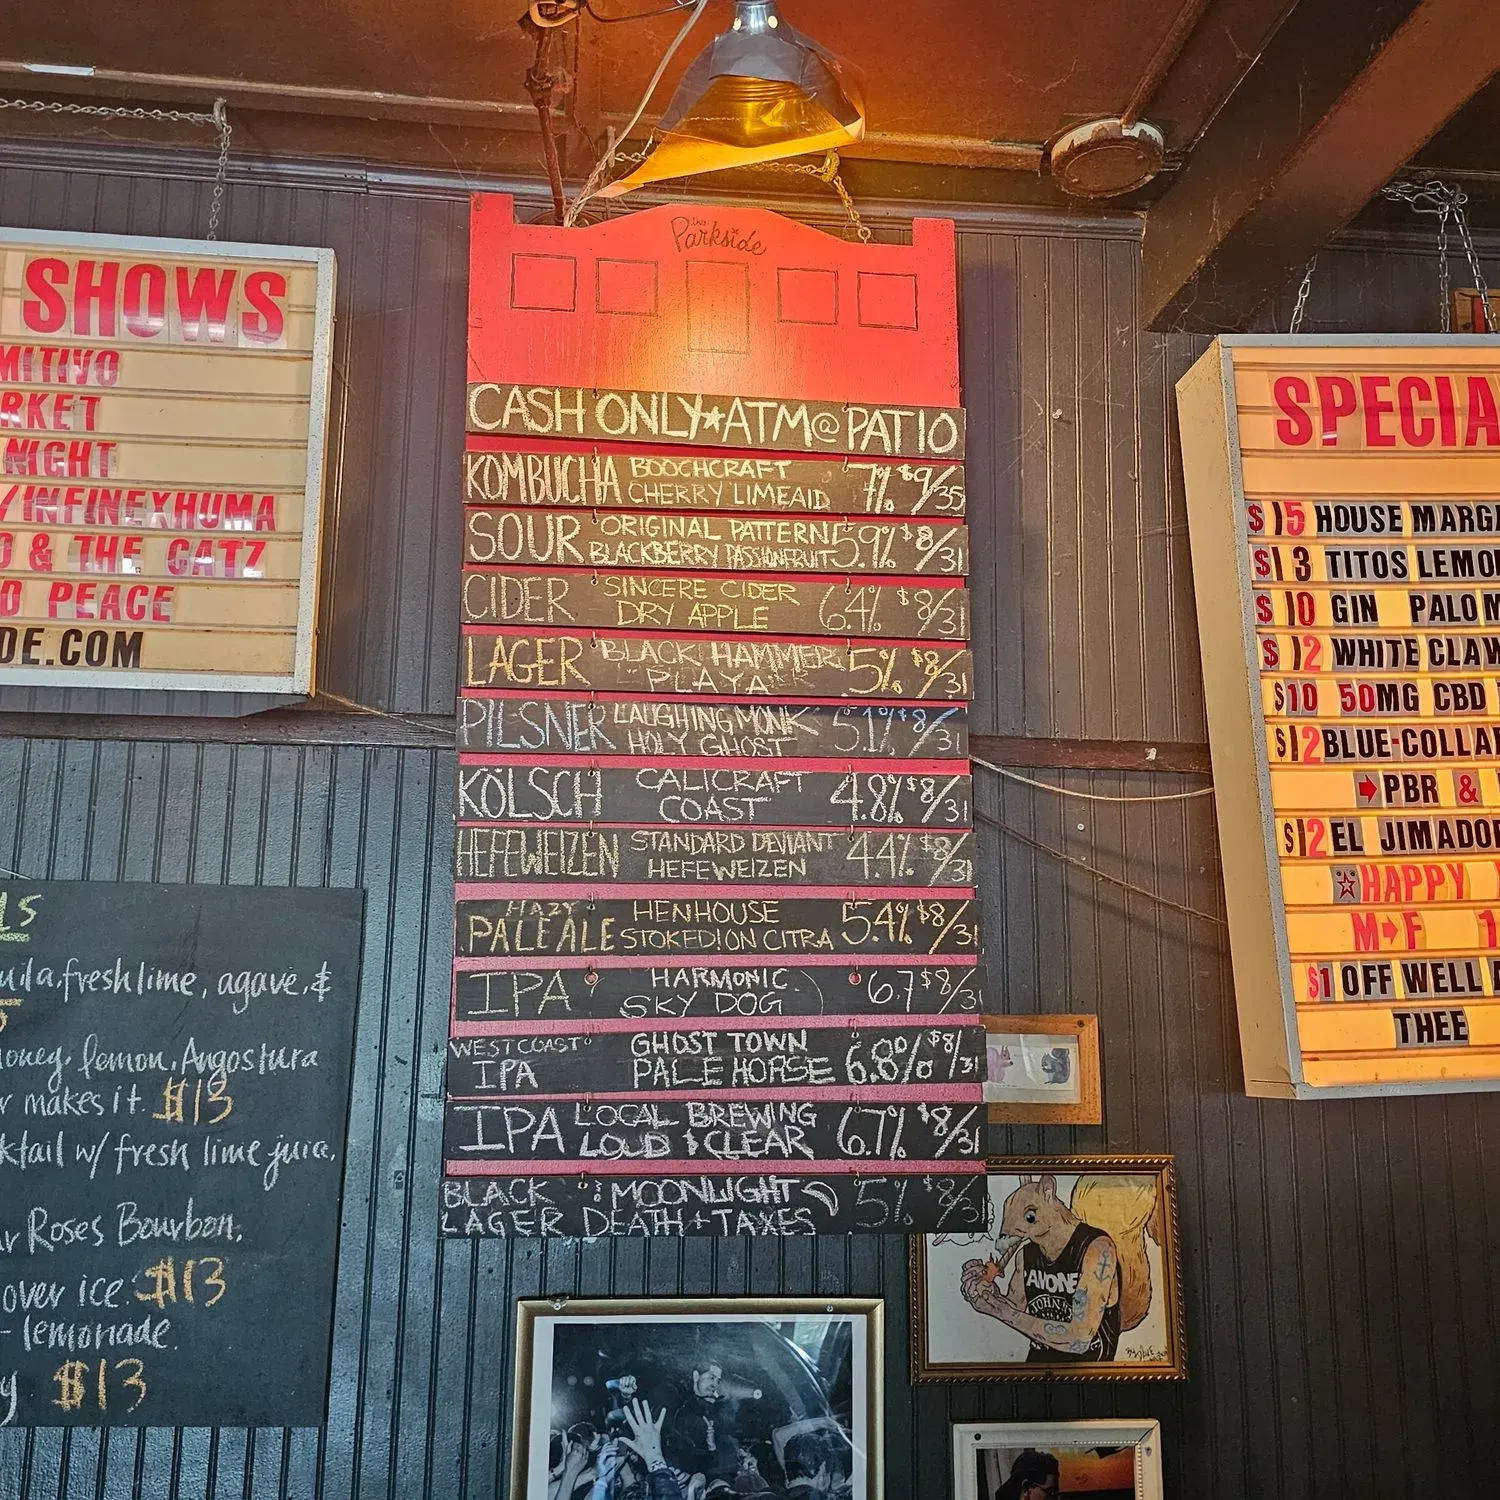 SHOWS
MITIVO
RKET
NIGHT
/INFINEXHUMA
O & THE CATZ
D PEACE
DE.COM
the
Parkside
CASH ONLY★ATM@PATIO
KOMBUCHA BOOCHCRAFT CHERRY LIMEAID 7% $9/35
SOUR ORIGINAL PATTERN BLACKBERRY PASSIONFRUIT 5.9% $8/31
CIDER SINCERE CIDER DRY APPLE 6.4% $8/31
LAGER BLACK HAMMER "PLAYA" 5% $8/31
PILSNER LAUGHING MONK HOLY GHOST 5.1% $8/31
KÖLSCH CALICRAFT COAST 4.8% $8/31
HEFEWEIZEN STANDARD DEVIANT HEFEWEIZEN 4.4% $8/31
HAZY PALE ALE HENHOUSE STOKED! ON CITRA 5.4% $8/31
IPA HARMONIC SKY DOG 6.7 $8/31
WEST COAST IPA GHOST TOWN PALE HORSE 6.8% $8/31
IPA LOCAL BREWING LOUD & CLEAR 6.7% $8/31
BLACK LAGER MOONLIGHT DEATH + TAXES 5% $8/31
SPECIA
$15 HOUSE MARGA
$13 TITOS LEMO
$10 GIN PALOM
$12 WHITE CLAW
$10 50MG CBD
$12 BLUE-COLLA
➔PBR &
$12 EL JIMADO
☆HAPPY
M➔F 1
$1 OFF WELL
THEE
LS
uila, fresh lime, agave, &
5
honey, lemon, Angostura
r makes it. $13
cktail w/ fresh lime juice,
r Roses Bourbon,
over ice. $13
- lemonade.
y $13
RAMONE
JOHNNY